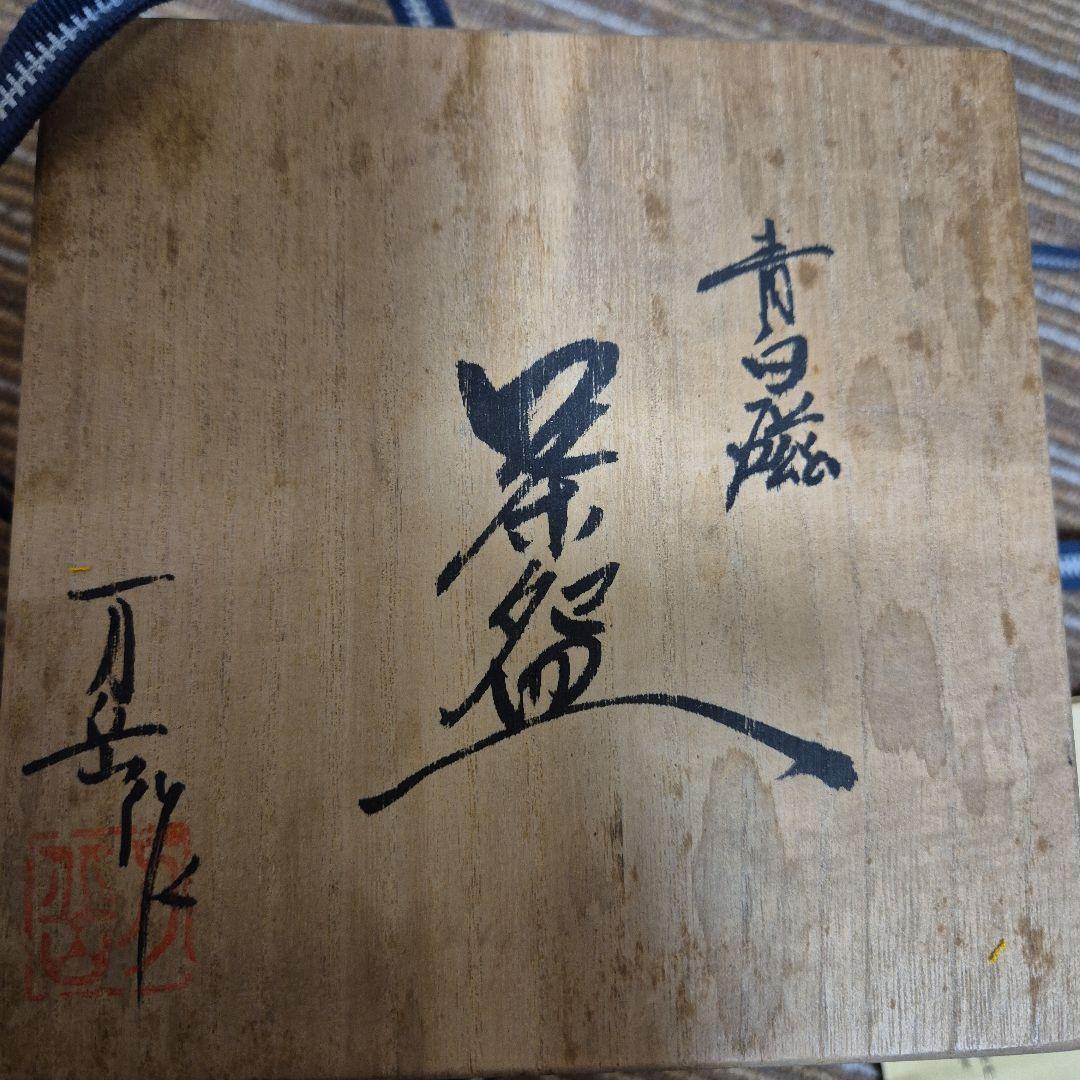 青白磁
茶盌
岳作